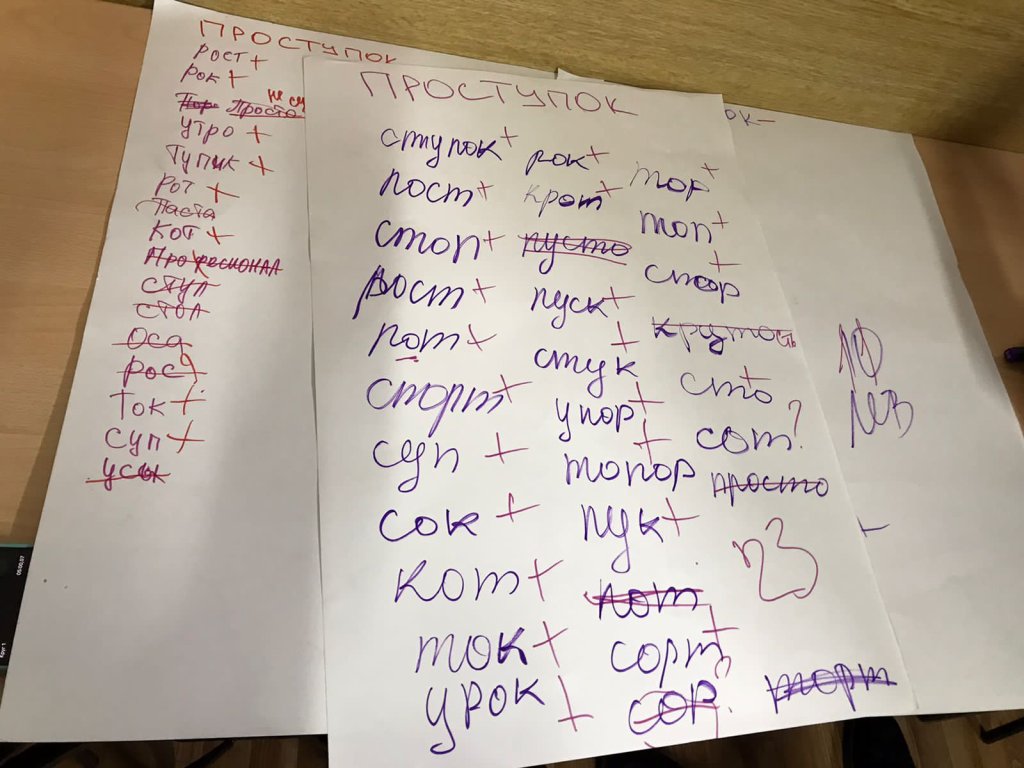 ПРОСТУПОК
РОСТ +
РОК +
Проста
УТРО +
ТУПИК +
РОТ +
Паста
КОТ +
ПРОФЕСИОНАЛ
СТУЛ
СТОЛ
Оса
РОС ?
ТОК +
СУП +
УСЫ
ПРОСТУПОК
ступок +
пост +
стоп +
рост +
пот +
спорт +
суп +
сок +
кот +
ток +
урок +
рок +
крот +
пусто
пуск +
стук +
упор +
топор +
пук +
пот
сорт +
сор ?
тор +
топ +
спор +
крутость
сто +
сот ?
просто
23
торт
ОК